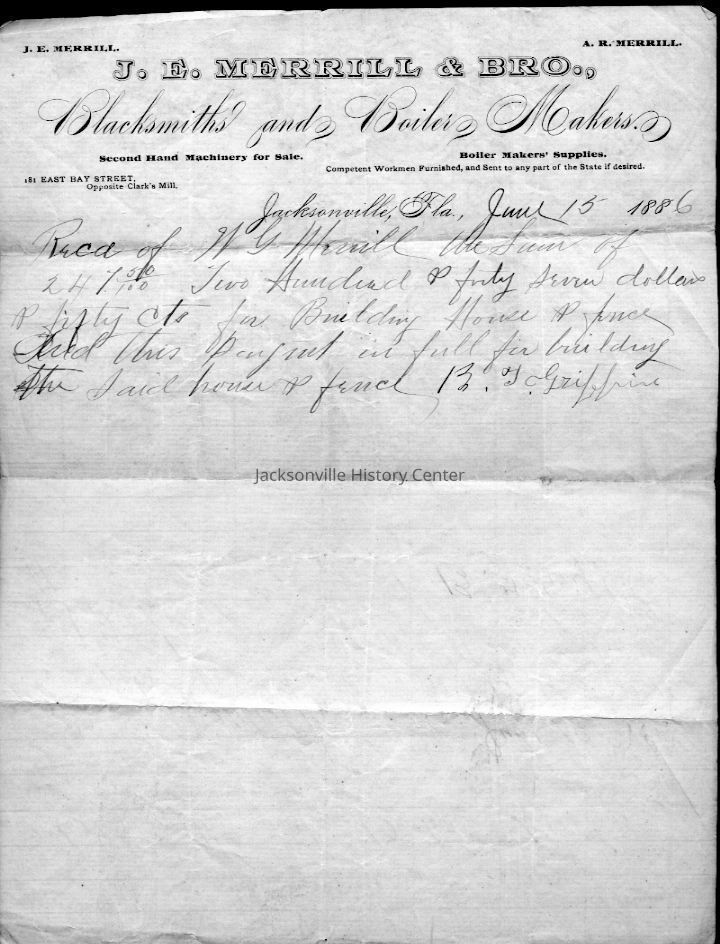 J. E. MERRILL. A. R. MERRILL.
J. E. MERRILL & BRO.,
Blacksmiths and Boiler Makers.
Second Hand Machinery for Sale. Boiler Makers' Supplies.
Competent Workmen Furnished, and Sent to any part of the State if desired.
181 EAST BAY STREET,
Opposite Clark's Mill.
Jacksonville, Fla., June 15 1886
Recd of W G Merrill the Sum of
247 50/100 Two Hundred & forty Seven dollars
& fifty cts for Building House & fence
And this in full for building
the Said house & fence B. F. Griffin
Jacksonville History Center